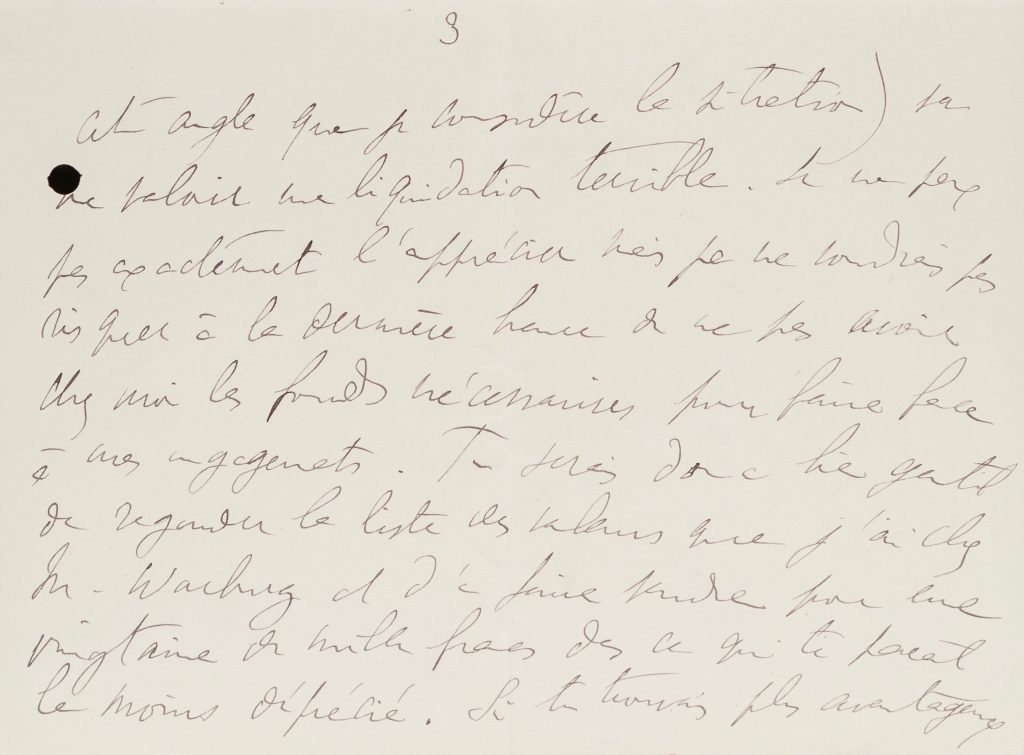 3
cet angle que je considère la situation) va
me valoir une liquidation terrible. Je ne peux
pas exactement l'apprécier mais je ne voudrais pas
risquer à la dernière heure de ne pas avoir
chez moi les fonds nécessaires pour faire face
à mes engagements. Tu serais donc bien gentil
de regarder la liste des valeurs que j'ai chez
M. Warburg et d'en faire vendre pour une
vingtaine de mille francs de ce qui te paraît
le moins déprécié. Si tu trouvais plus avantageux